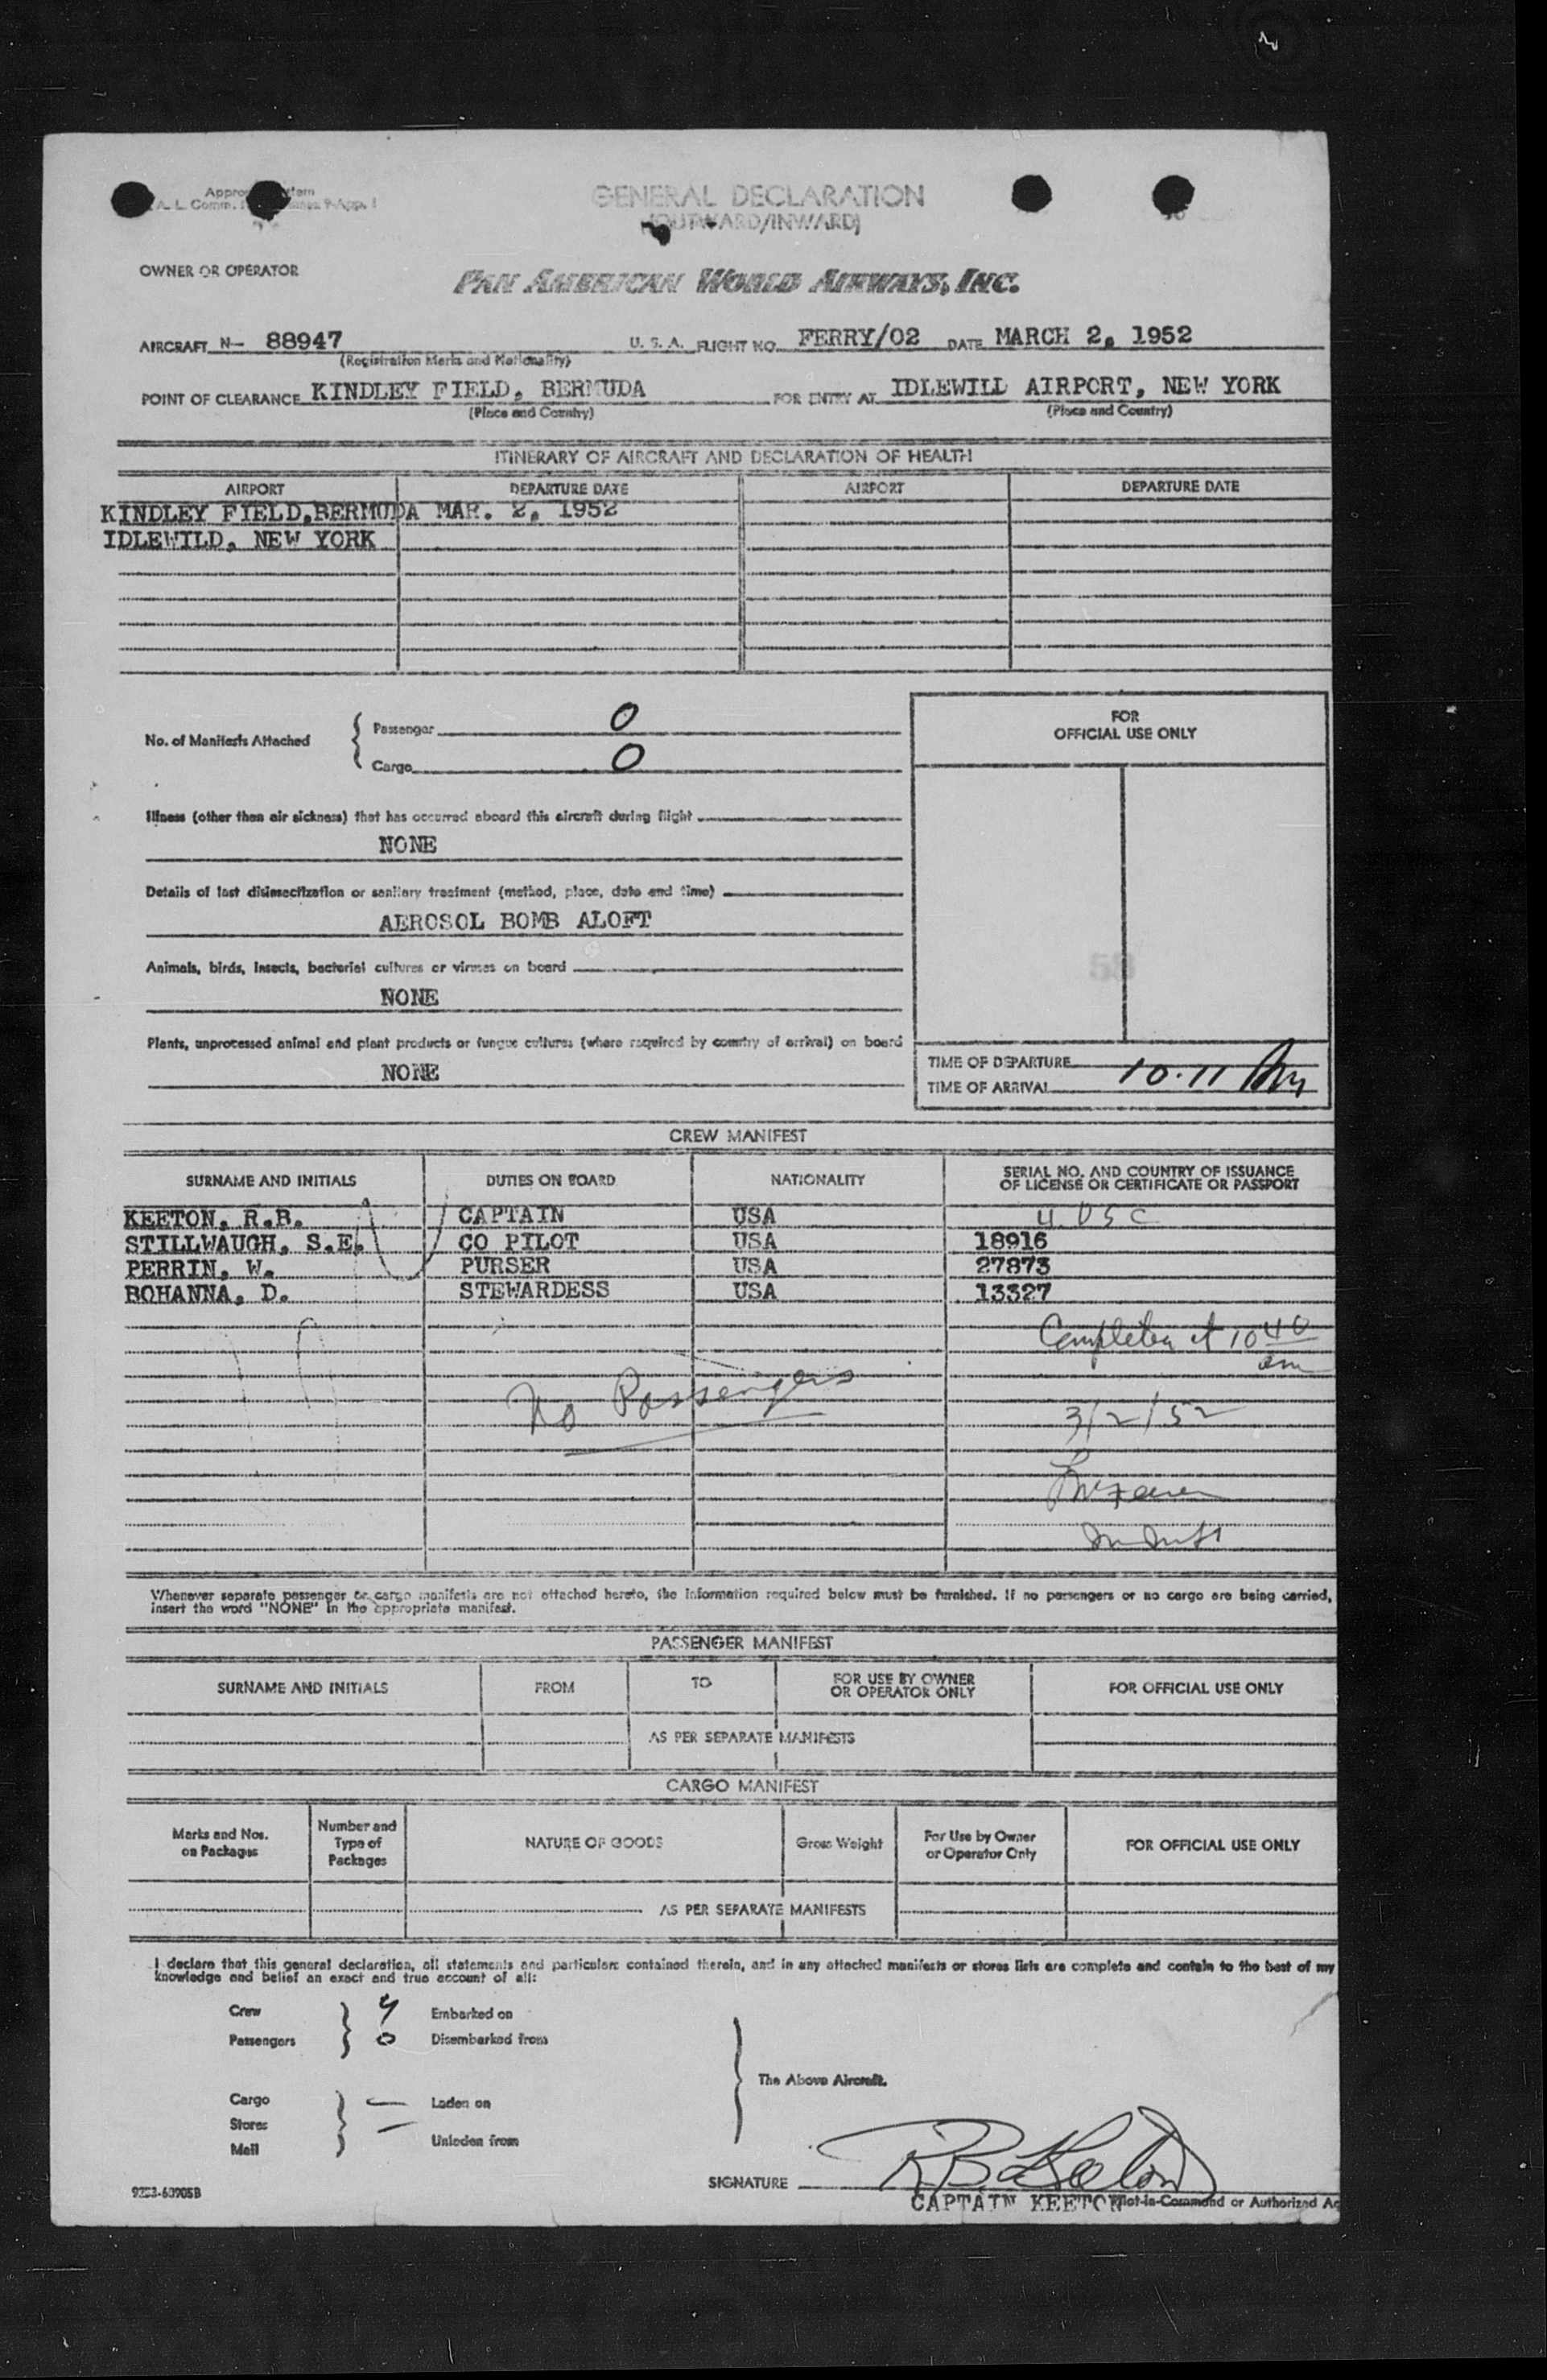 GENERAL DECLARATION
(OUTWARD/INWARD)
OWNER OR OPERATOR
PAN AMERICAN WORLD AIRWAYS, INC.
AIRCRAFT N- 88947 U. S. A. FLIGHT NO. FERRY/02 DATE MARCH 2, 1952
(Registration Marks and Nationality)
POINT OF CLEARANCE KINDLEY FIELD, BERMUDA FOR ENTRY AT IDLEWILD AIRPORT, NEW YORK
(Place and Country) (Place and Country)
ITINERARY OF AIRCRAFT AND DECLARATION OF HEALTH
AIRPORT DEPARTURE DATE AIRPORT DEPARTURE DATE
KINDLEY FIELD,BERMUDA MAR. 2, 1952
IDLEWILD, NEW YORK
FOR
OFFICIAL USE ONLY
No. of Manifests Attached
Passenger 0
Cargo 0
Illness (other than air sickness) that has occurred aboard this aircraft during flight
NONE
Details of last disinsectization or sanitary treatment (method, place, date and time)
AEROSOL BOMB ALOFT
Animals, birds, insects, bacterial cultures or viruses on board
NONE
Plants, unprocessed animal and plant products or fungus cultures (where required by country of arrival) on board
NONE
TIME OF DEPARTURE
TIME OF ARRIVAL 10.11
CREW MANIFEST
SURNAME AND INITIALS DUTIES ON BOARD NATIONALITY SERIAL NO. AND COUNTRY OF ISSUANCE
OF LICENSE OR CERTIFICATE OR PASSPORT
KEETON, R.B. CAPTAIN USA 4 USC
STILLWAUGH, S.E. CO PILOT USA 18916
PERRIN, W. PURSER USA 27873
BOHANNA, D. STEWARDESS USA 13327
Completed at 10 40
am
No Passengers
3/2/52
Whenever separate passenger or cargo manifests are not attached hereto, the information required below must be furnished. If no passengers or no cargo are being carried,
insert the word "NONE" in the appropriate manifest.
PASSENGER MANIFEST
SURNAME AND INITIALS FROM TO FOR USE BY OWNER
OR OPERATOR ONLY FOR OFFICIAL USE ONLY
AS PER SEPARATE MANIFESTS
CARGO MANIFEST
Marks and Nos.
on Packages
Number and
Type of
Packages
NATURE OF GOODS Gross Weight
For Use by Owner
or Operator Only
FOR OFFICIAL USE ONLY
AS PER SEPARATE MANIFESTS
I declare that this general declaration, all statements and particulars contained therein, and in any attached manifests or stores lists are complete and contain to the best of my
knowledge and belief an exact and true account of all:
Crew 4 Embarked on
Passengers 0 Disembarked from
The Above Aircraft.
Cargo — Laden on
Stores —
Mail Unladen from
SIGNATURE RB Keeton
CAPTAIN KEETON Pilot-in-Command or Authorized Ag